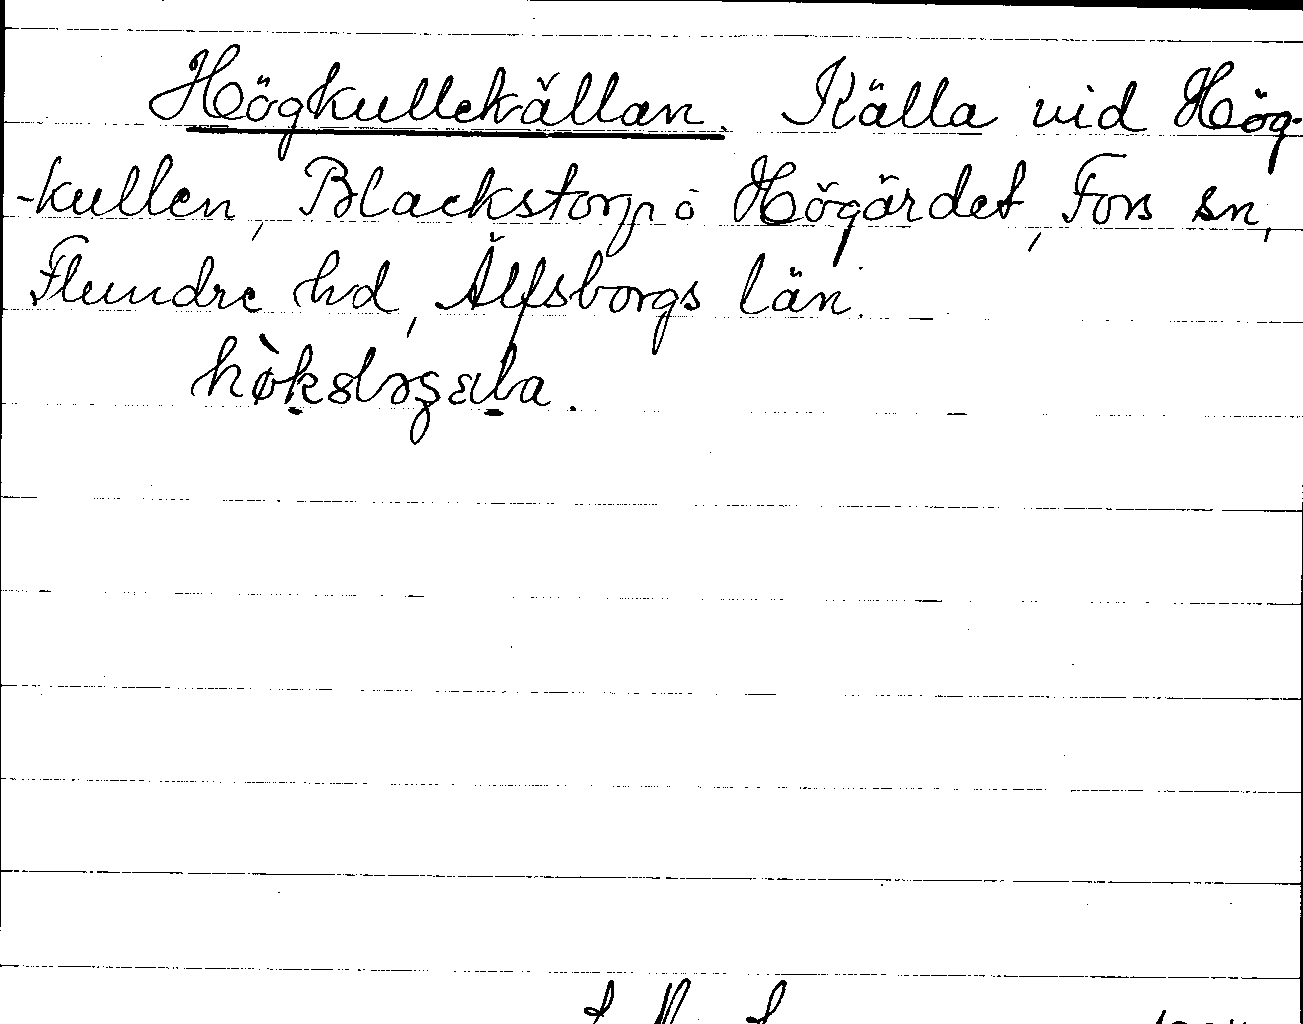 Högkullekällan. Källa vid Hög-
-kullen, Blackstorp o Högärdet, Fors sn,
Flundre hd, Älfsborgs län.